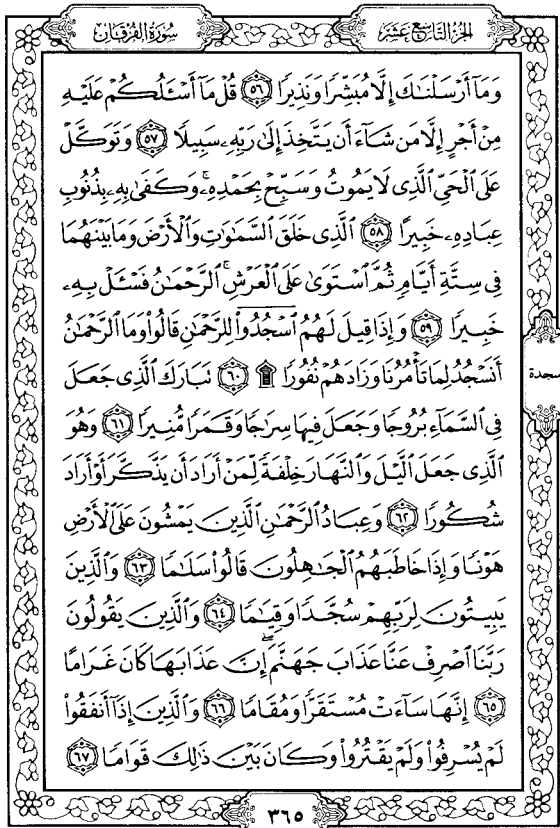 الجزء التاسع عشر
سورة الفرقان
وَمَآ أَرْسَلْنَٰكَ إِلَّا مُبَشِّرًا وَنَذِيرًا ٥٦ قُلْ مَآ أَسْـَٔلُكُمْ عَلَيْهِ
مِنْ أَجْرٍ إِلَّا مَن شَآءَ أَن يَتَّخِذَ إِلَىٰ رَبِّهِۦ سَبِيلًا ٥٧ وَتَوَكَّلْ
عَلَى ٱلْحَىِّ ٱلَّذِى لَا يَمُوتُ وَسَبِّحْ بِحَمْدِهِۦۚ وَكَفَىٰ بِهِۦ بِذُنُوبِ
عِبَادِهِۦ خَبِيرًا ٥٨ ٱلَّذِى خَلَقَ ٱلسَّمَٰوَٰتِ وَٱلْأَرْضَ وَمَا بَيْنَهُمَا
فِى سِتَّةِ أَيَّامٍ ثُمَّ ٱسْتَوَىٰ عَلَى ٱلْعَرْشِۚ ٱلرَّحْمَٰنُ فَسْـَٔلْ بِهِۦ
خَبِيرًا ٥٩ وَإِذَا قِيلَ لَهُمُ ٱسْجُدُوا۟ لِلرَّحْمَٰنِ قَالُوا۟ وَمَا ٱلرَّحْمَٰنُ
أَنَسْجُدُ لِمَا تَأْمُرُنَا وَزَادَهُمْ نُفُورًا ۩ ٦٠ تَبَارَكَ ٱلَّذِى جَعَلَ
سجدة
فِى ٱلسَّمَآءِ بُرُوجًا وَجَعَلَ فِيهَا سِرَٰجًا وَقَمَرًا مُّنِيرًا ٦١ وَهُوَ
ٱلَّذِى جَعَلَ ٱلَّيْلَ وَٱلنَّهَارَ خِلْفَةً لِّمَنْ أَرَادَ أَن يَذَّكَّرَ أَوْ أَرَادَ
شُكُورًا ٦٢ وَعِبَادُ ٱلرَّحْمَٰنِ ٱلَّذِينَ يَمْشُونَ عَلَى ٱلْأَرْضِ
هَوْنًا وَإِذَا خَاطَبَهُمُ ٱلْجَٰهِلُونَ قَالُوا۟ سَلَٰمًا ٦٣ وَٱلَّذِينَ
يَبِيتُونَ لِرَبِّهِمْ سُجَّدًا وَقِيَٰمًا ٦٤ وَٱلَّذِينَ يَقُولُونَ
رَبَّنَا ٱصْرِفْ عَنَّا عَذَابَ جَهَنَّمَۖ إِنَّ عَذَابَهَا كَانَ غَرَامًا
٦٥ إِنَّهَا سَآءَتْ مُسْتَقَرًّا وَمُقَامًا ٦٦ وَٱلَّذِينَ إِذَآ أَنفَقُوا۟
لَمْ يُسْرِفُوا۟ وَلَمْ يَقْتُرُوا۟ وَكَانَ بَيْنَ ذَٰلِكَ قَوَامًا ٦٧
٣٦٥